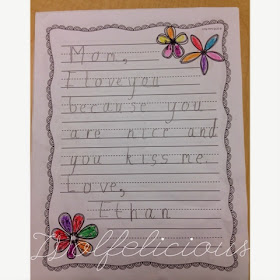 Mom,
I love you
because you
are nice and
you kiss me.
Love,
Ethan